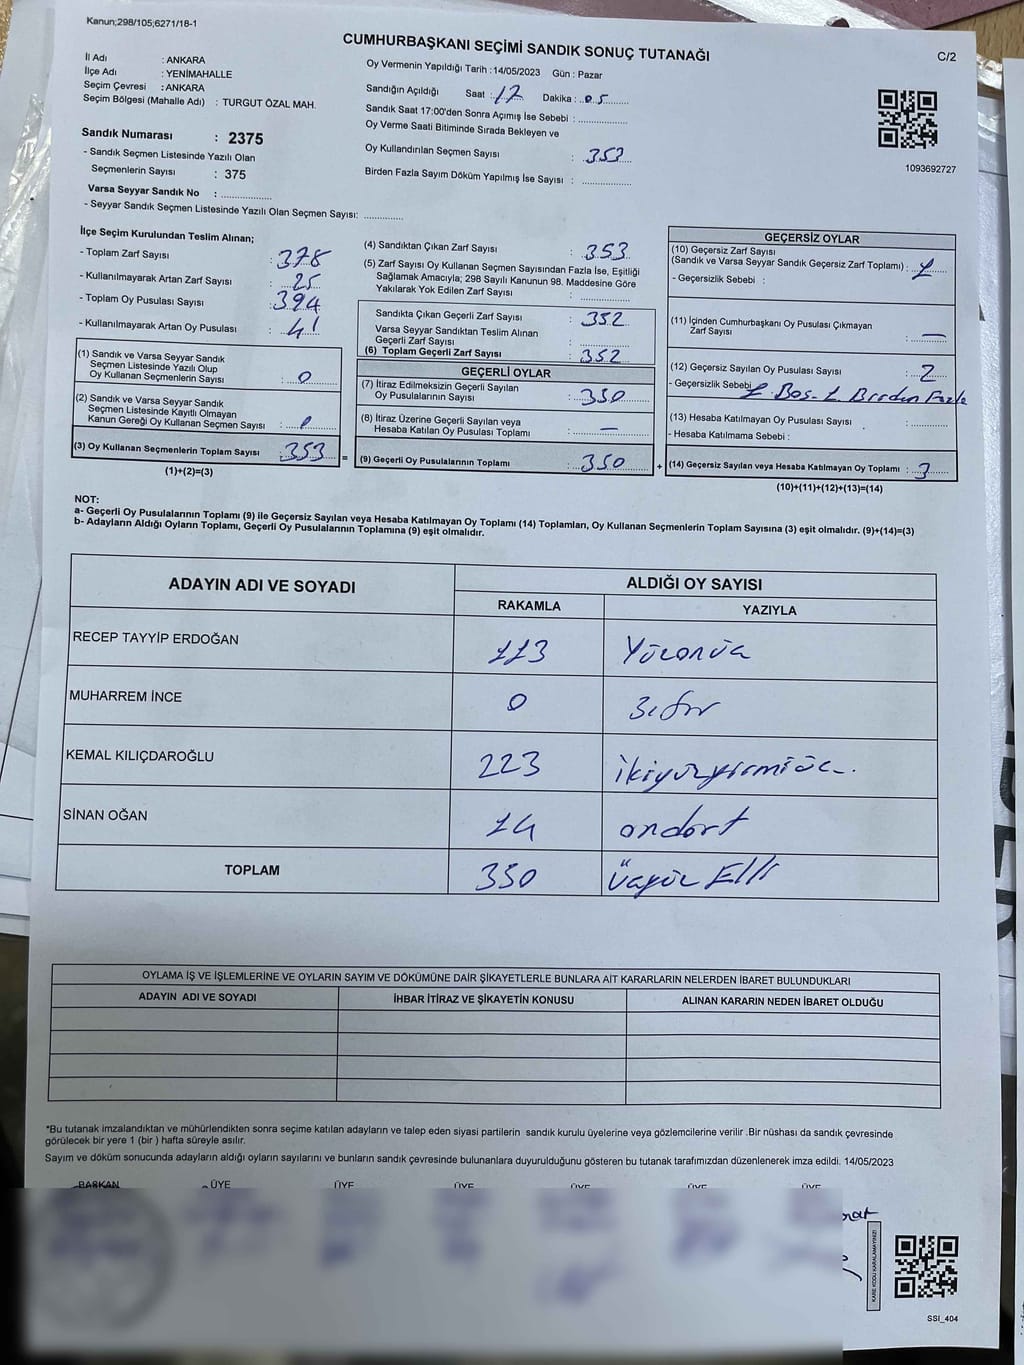 Kanun;298/105;6271/18-1
CUMHURBAŞKANI SEÇİMİ SANDIK SONUÇ TUTANAĞI
C/2
İl Adı : ANKARA
İlçe Adı : YENİMAHALLE
Seçim Çevresi : ANKARA
Seçim Bölgesi (Mahalle Adı) : TURGUT ÖZAL MAH.
Sandık Numarası : 2375
- Sandık Seçmen Listesinde Yazılı Olan
Seçmenlerin Sayısı : 375
Varsa Seyyar Sandık No : ..............
- Seyyar Sandık Seçmen Listesinde Yazılı Olan Seçmen Sayısı: ............
Oy Vermenin Yapıldığı Tarih : 14/05/2023 Gün : Pazar
Sandığın Açıldığı Saat : 17 Dakika : 05
Sandık Saat 17:00'den Sonra Açımış İse Sebebi : ..............
Oy Verme Saati Bitiminde Sırada Bekleyen ve
Oy Kullandırılan Seçmen Sayısı : 353
Birden Fazla Sayım Döküm Yapılmış İse Sayısı : ..............
1093692727
İlçe Seçim Kurulundan Teslim Alınan;
- Toplam Zarf Sayısı : 378
- Kullanılmayarak Artan Zarf Sayısı : 25
- Toplam Oy Pusulası Sayısı : 394
- Kullanılmayarak Artan Oy Pusulası : 41
(1) Sandık ve Varsa Seyyar Sandık
Seçmen Listesinde Yazılı Olup
Oy Kullanan Seçmenlerin Sayısı : 0
(2) Sandık ve Varsa Seyyar Sandık
Seçmen Listesinde Kayıtlı Olmayan
Kanun Gereği Oy Kullanan Seçmen Sayısı : 0
(3) Oy Kullanan Seçmenlerin Toplam Sayısı : 353
(1)+(2)=(3)
(4) Sandıktan Çıkan Zarf Sayısı : 353
(5) Zarf Sayısı Oy Kullanan Seçmen Sayısından Fazla İse, Eşitliği
Sağlamak Amacıyla; 298 Sayılı Kanunun 98. Maddesine Göre
Yakılarak Yok Edilen Zarf Sayısı : ..............
Sandıkta Çıkan Geçerli Zarf Sayısı : 352
Varsa Seyyar Sandıktan Teslim Alınan
Geçerli Zarf Sayısı : ..............
(6) Toplam Geçerli Zarf Sayısı : 352
GEÇERLİ OYLAR
(7) İtiraz Edilmeksizin Geçerli Sayılan
Oy Pusulalarının Sayısı : 350
(8) İtiraz Üzerine Geçerli Sayılan veya
Hesaba Katılan Oy Pusulası Toplamı : —
= (9) Geçerli Oy Pusulalarının Toplamı : 350
GEÇERSİZ OYLAR
(10) Geçersiz Zarf Sayısı
(Sandık ve Varsa Seyyar Sandık Geçersiz Zarf Toplamı) : 1
- Geçersizlik Sebebi :
(11) İçinden Cumhurbaşkanı Oy Pusulası Çıkmayan
Zarf Sayısı : —
(12) Geçersiz Sayılan Oy Pusulası Sayısı : 2
- Geçersizlik Sebebi 1 Boş - 1 Birden Fazla
(13) Hesaba Katılmayan Oy Pusulası Sayısı : ..........
- Hesaba Katılmama Sebebi :
+ (14) Geçersiz Sayılan veya Hesaba Katılmayan Oy Toplamı : 3
(10)+(11)+(12)+(13)=(14)
NOT:
a- Geçerli Oy Pusulalarının Toplamı (9) ile Geçersiz Sayılan veya Hesaba Katılmayan Oy Toplamı (14) Toplamları, Oy Kullanan Seçmenlerin Toplam Sayısına (3) eşit olmalıdır. (9)+(14)=(3)
b- Adayların Aldığı Oyların Toplamı, Geçerli Oy Pusulalarının Toplamına (9) eşit olmalıdır.
ADAYIN ADI VE SOYADI
ALDIĞI OY SAYISI
RAKAMLA YAZIYLA
RECEP TAYYİP ERDOĞAN 113 Yüzonüç
MUHARREM İNCE 0 Sıfır
KEMAL KILIÇDAROĞLU 223 ikiyüzyirmiüç
SİNAN OĞAN 14 ondört
TOPLAM 350 Üçyüz Elli
OYLAMA İŞ VE İŞLEMLERİNE VE OYLARIN SAYIM VE DÖKÜMÜNE DAİR ŞİKAYETLERLE BUNLARA AİT KARARLARIN NELERDEN İBARET BULUNDUKLARI
ADAYIN ADI VE SOYADI İHBAR İTİRAZ VE ŞİKAYETİN KONUSU ALINAN KARARIN NEDEN İBARET OLDUĞU
*Bu tutanak imzalandıktan ve mühürlendikten sonra seçime katılan adayların ve talep eden siyasi partilerin sandık kurulu üyelerine veya gözlemcilerine verilir .Bir nüshası da sandık çevresinde
görülecek bir yere 1 (bir ) hafta süreyle asılır.
Sayım ve döküm sonucunda adayların aldığı oyların sayılarını ve bunların sandık çevresinde bulunanlara duyurulduğunu gösteren bu tutanak tarafımızdan düzenlenerek imza edildi. 14/05/2023
BAŞKAN ÜYE ÜYE ÜYE ÜYE ÜYE ÜYE
KARE KODU KARALAMAYINIZ!
SSI_404